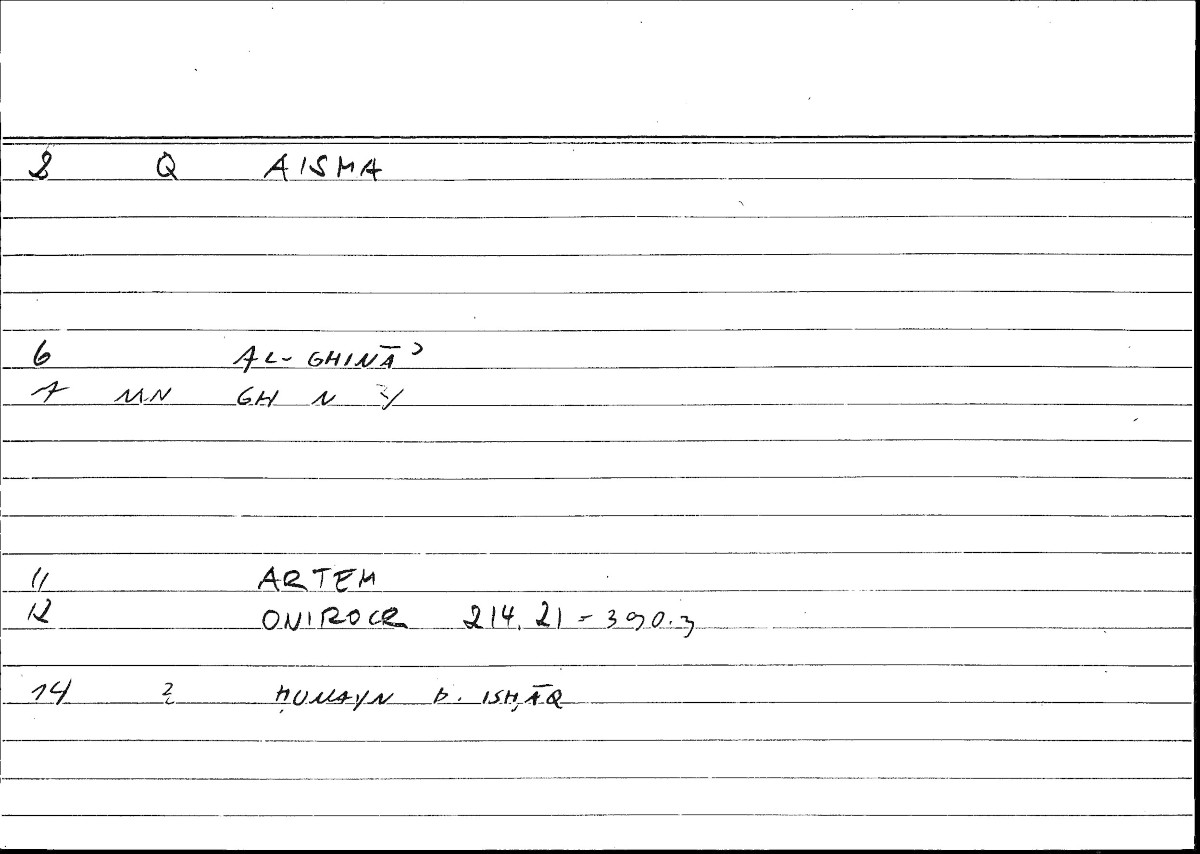 2 Q AISMA
6 AL-GHINĀʾ
7 MN GH N ʾ/
11 ARTEM
12 ONIROCR 214.21 = 390.3
14 ḤUNAYN b. ISḤĀQ